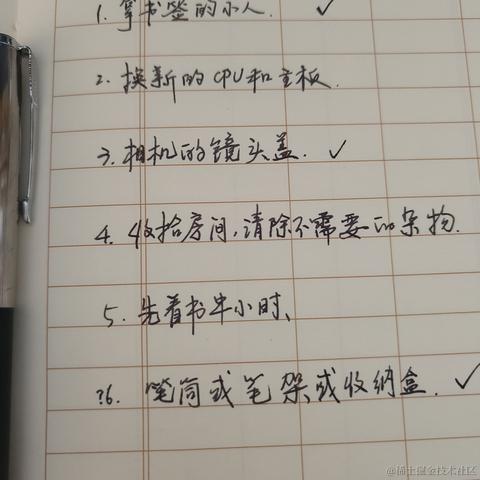 1. 拿书签的小人. ✓
2. 换新的CPU和主板.
3. 相机的镜头盖. ✓
4. 收拾房间,清除不需要的杂物.
5. 先看书半小时、
26. 笔筒或笔架或收纳盒. ✓
@稀土掘金技术社区